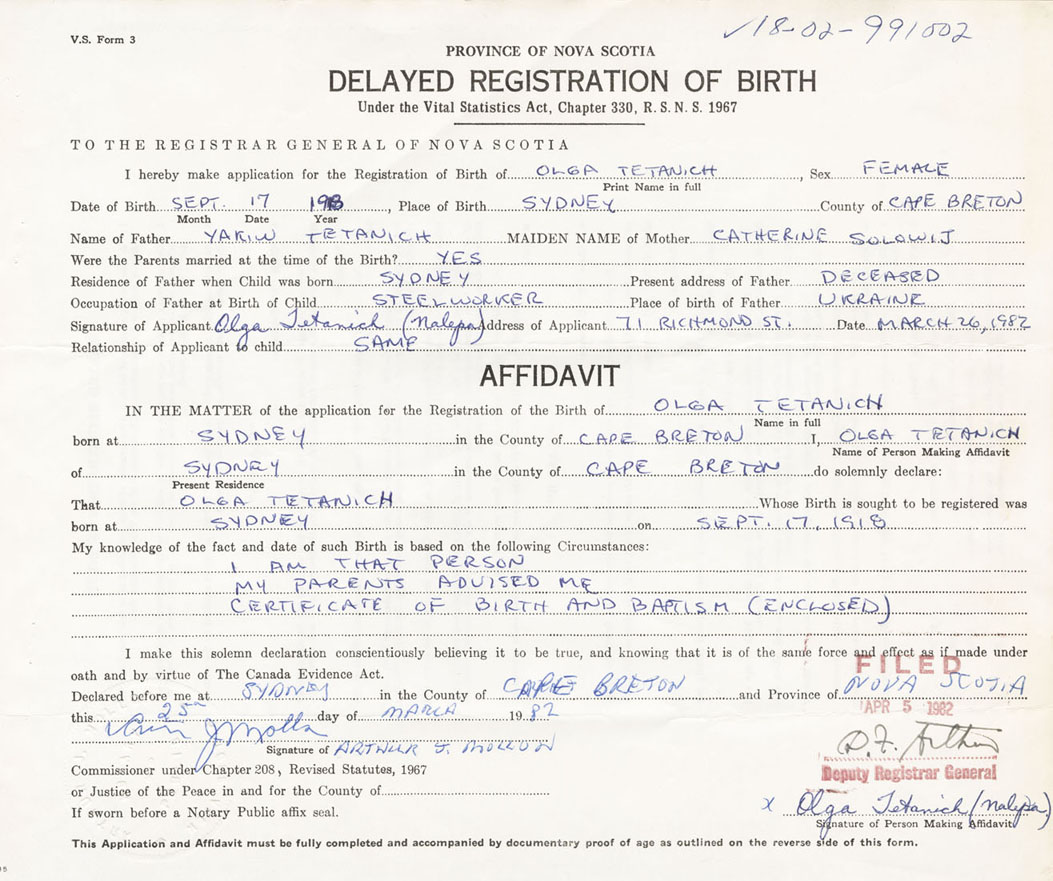 V.S. Form 3
✓18-02-991002
PROVINCE OF NOVA SCOTIA
DELAYED REGISTRATION OF BIRTH
Under the Vital Statistics Act, Chapter 330, R.S.N.S. 1967
TO THE REGISTRAR GENERAL OF NOVA SCOTIA
I hereby make application for the Registration of Birth of OLGA TETANICH, Sex FEMALE
Print Name in full
Date of Birth SEPT. 17 1918, Place of Birth SYDNEY County of CAPE BRETON
Month Date Year
Name of Father YAKIW TETANICH MAIDEN NAME of Mother CATHERINE SOLOWIJ
Were the Parents married at the time of the Birth? YES
Residence of Father when Child was born SYDNEY Present address of Father DECEASED
Occupation of Father at Birth of Child STEELWORKER Place of birth of Father UKRAINE
Signature of Applicant Olga Tetanich (Nalepa) Address of Applicant 71 RICHMOND ST. Date MARCH 26, 1982
Relationship of Applicant to child SAME
AFFIDAVIT
IN THE MATTER of the application for the Registration of the Birth of OLGA TETANICH
Name in full
born at SYDNEY in the County of CAPE BRETON I, OLGA TETANICH
Name of Person Making Affidavit
of SYDNEY in the County of CAPE BRETON do solemnly declare:
Present Residence
That OLGA TETANICH Whose Birth is sought to be registered was
born at SYDNEY on SEPT. 17, 1918
My knowledge of the fact and date of such Birth is based on the following Circumstances:
I AM THAT PERSON
MY PARENTS ADVISED ME
CERTIFICATE OF BIRTH AND BAPTISM (ENCLOSED)
I make this solemn declaration conscientiously believing it to be true, and knowing that it is of the same force and effect as if made under
oath and by virtue of The Canada Evidence Act.
FILED
Declared before me at SYDNEY in the County of CAPE BRETON and Province of NOVA SCOTIA
APR 5 1982
this 25th day of MARCH 1982
Signature of ARTHUR J. MOLLON
Commissioner under Chapter 208, Revised Statutes, 1967
Deputy Registrar General
or Justice of the Peace in and for the County of
x Olga Tetanich (Nalepa)
If sworn before a Notary Public affix seal.
Signature of Person Making Affidavit
This Application and Affidavit must be fully completed and accompanied by documentary proof of age as outlined on the reverse side of this form.